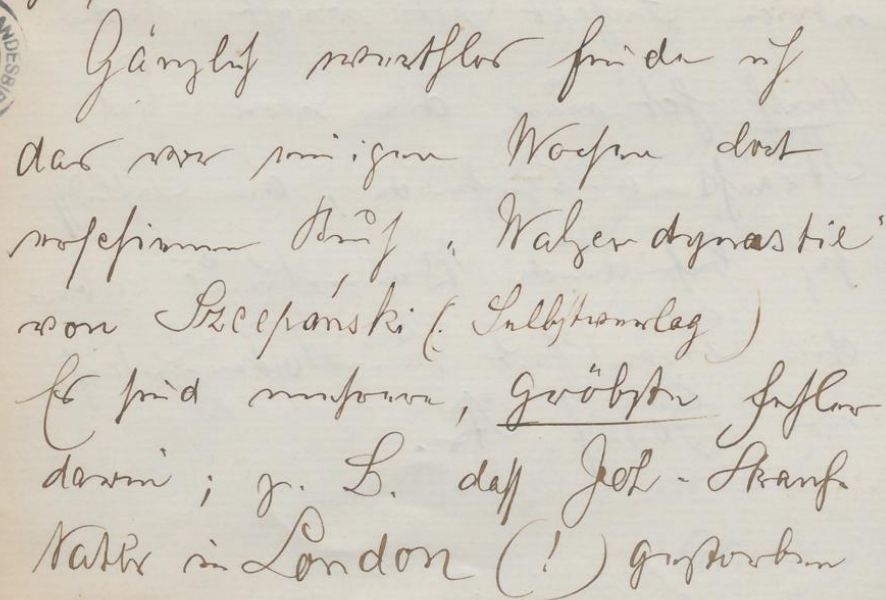 ANDESBI
Gänzlich werthlos finde ich
das vor einigen Wochen dort
erschienene Buch „Walzerdynastie"
von Szcepánski (: Selbstverlag )
Es sind mehrere, gröbste Fehler
darin; z. B. daß Joh. Strauß
Vater in London (!) gestorben